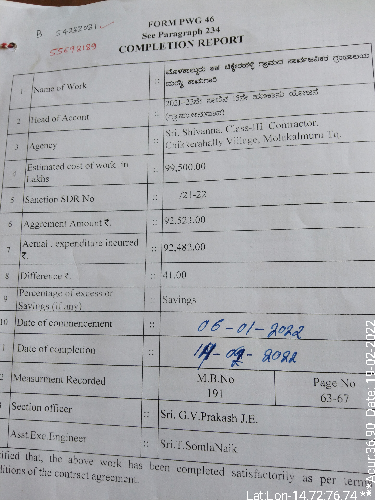 FORM PWG 46
B 54282021
See Paragraph 234
55692189
COMPLETION REPORT
1 Name of Work :: ಮೊಳಕಾಲ್ಮೂರು ತಾ|| ಚಿಕ್ಕೇರಹಳ್ಳಿ ಗ್ರಾಮದ ಸಾರ್ವಜನಿಕರ ಗ್ರಂಥಾಲಯ
ಕಾಮಗಾರಿ
2 Head of Accont :: 2021-22ನೇ ಸಾಲಿನ 15ನೇ ಹಣಕಾಸು ಯೋಜನೆ
3 Agency :: Sri. Shivanna, Class-III, Contractor,
Chikkerahally Village, Molakalmuru Tq.
4 Estimated cost of work in Lakhs :: 99,500.00
5 Sanction SDR No :: /21-22
6 Aggrement Amount ₹. :: 92,523.00
7 Actual . expenditure incurred ₹. :: 92,482.00
8 Difference ₹. :: 41.00
9 Percentage of excess or Savings (if any) :: Savings
10 Date of commencement :: 06-01-2022
1 Date of completion :: 14-02-2022
2 Measurment Recorded :: M.B.No 191 Page No 63-67
Section officer :: Sri. G.V.Prakash J.E.
Asst.Exe.Engineer :: Sri.T.SomlaNaik
rtified that, the above work has been completed satisfactorily as per terms
ditions of the contract agreement.
Lat:Lon-14.7276,76.74 *** Acur:36.90 Date:19-02-2022